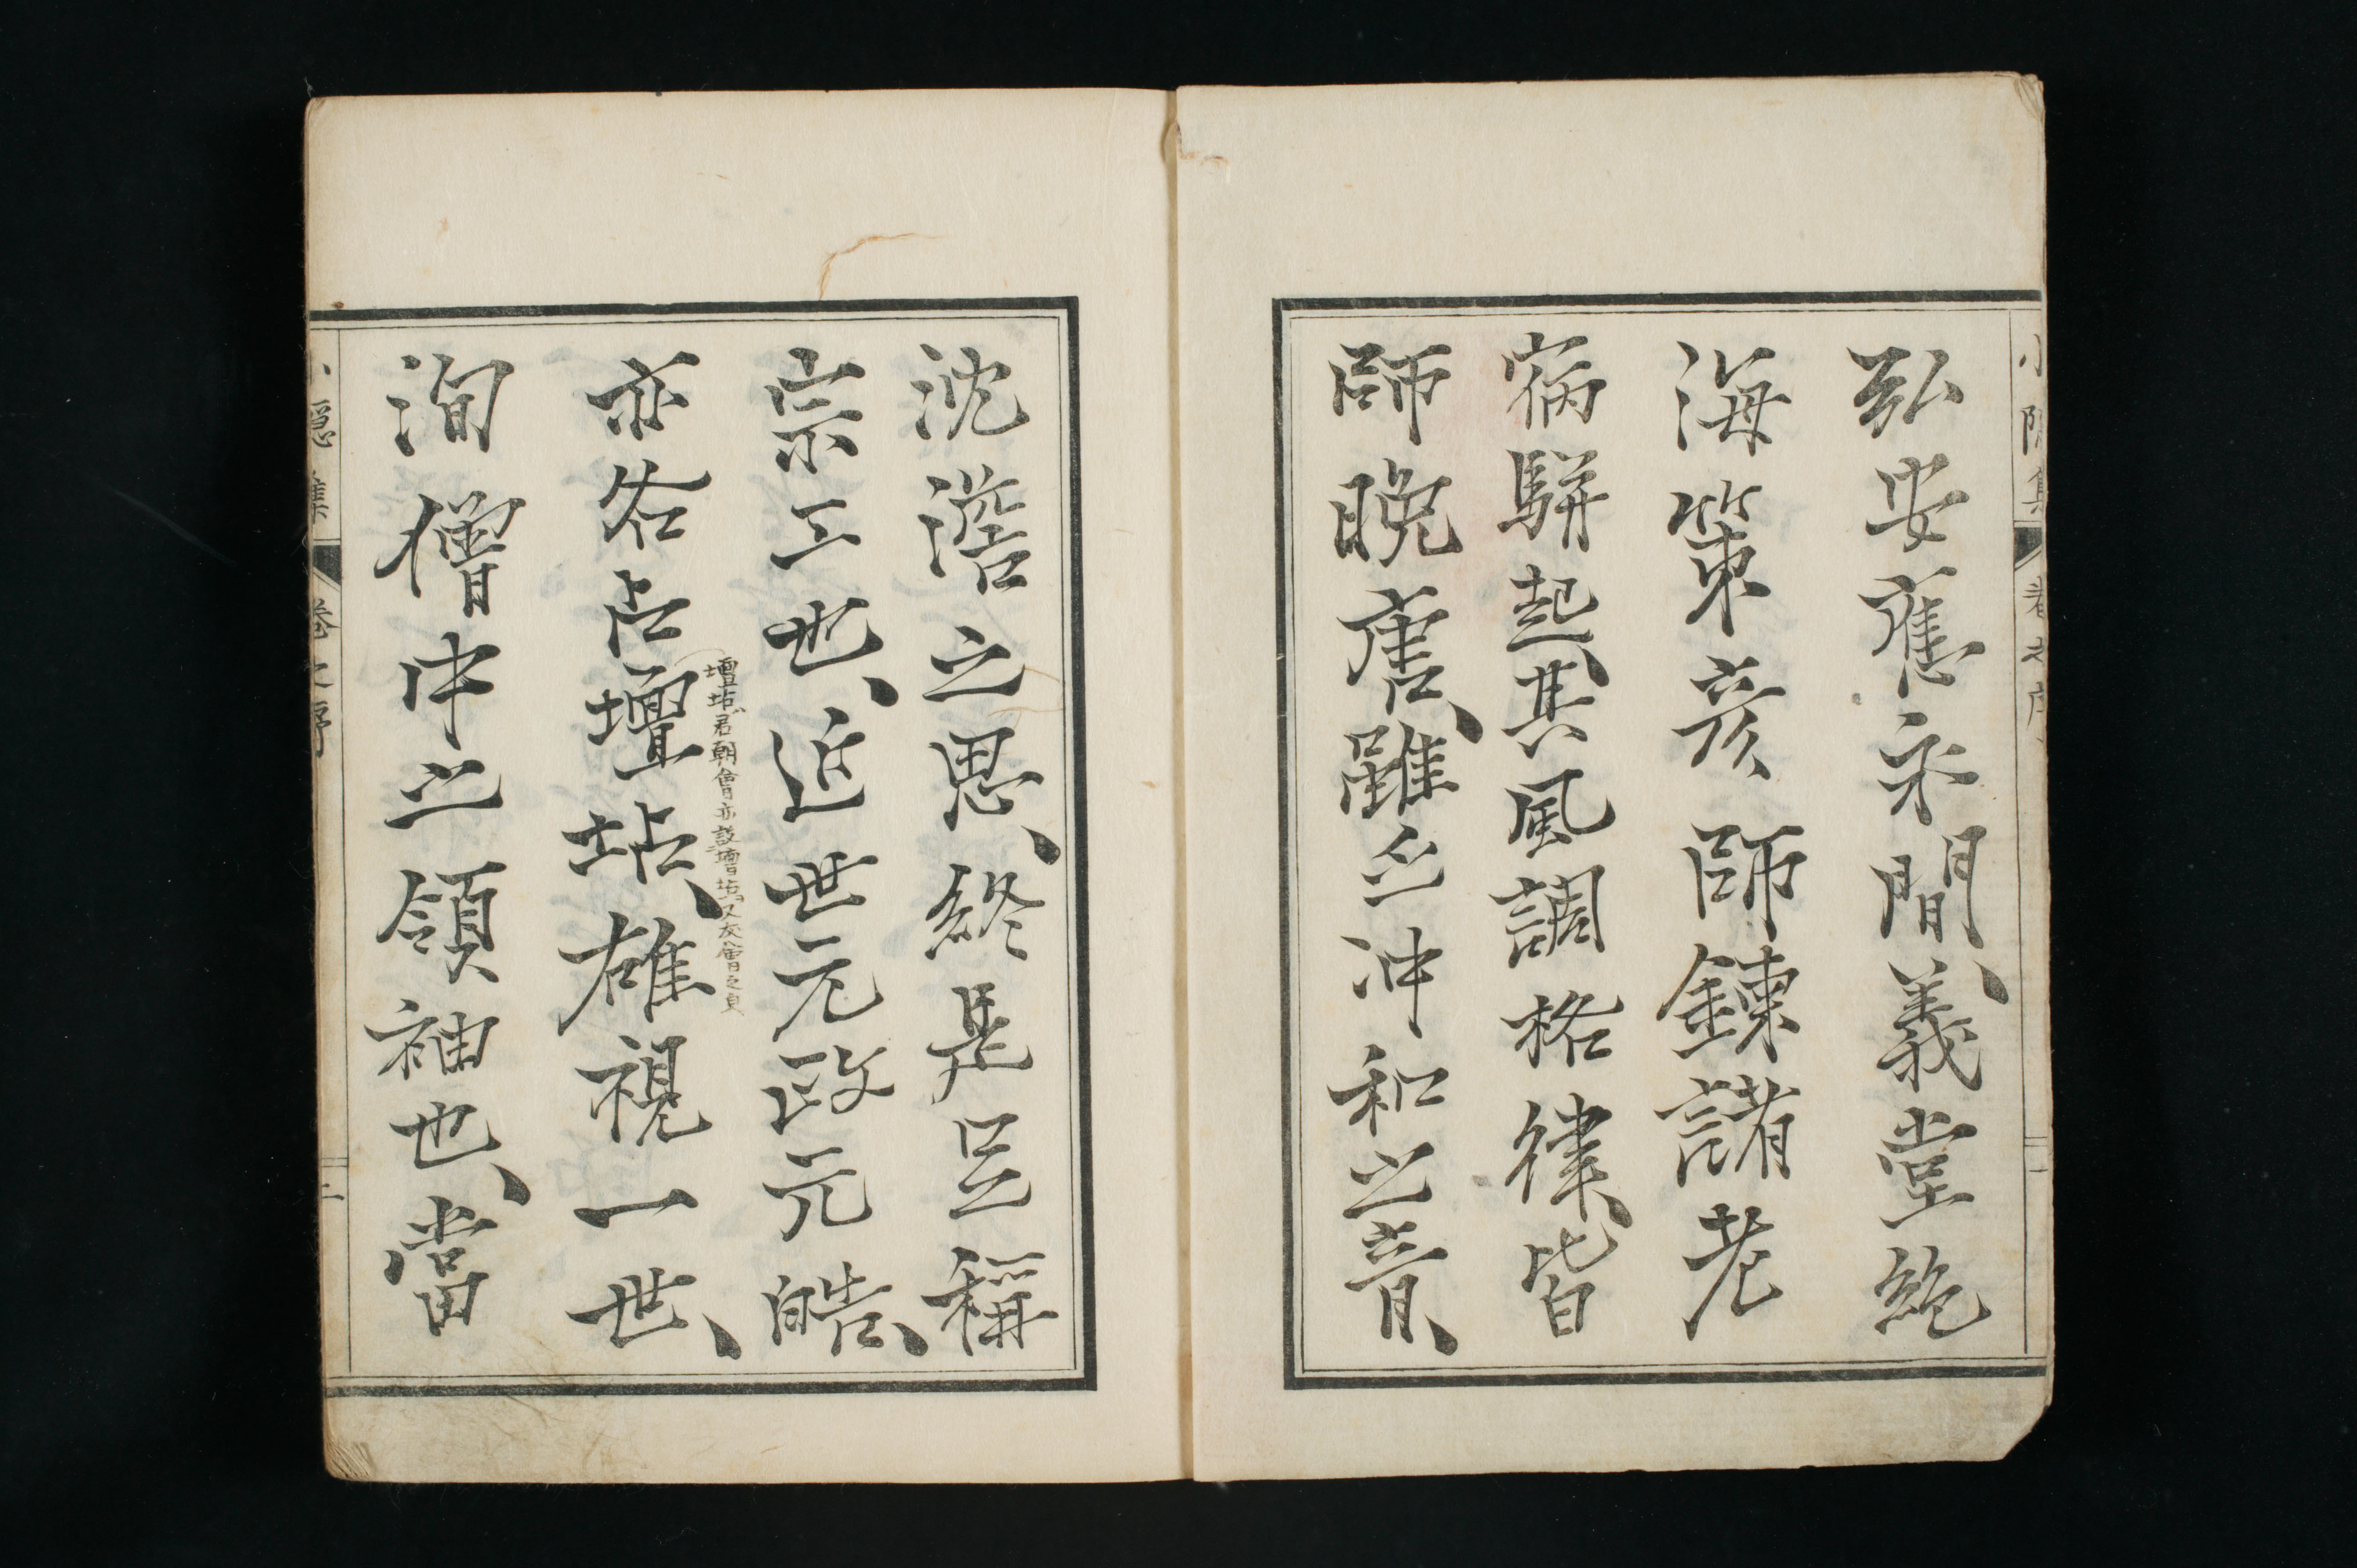 小隱集 卷之序 一
弘安應永間、義堂絶
海策彦師錬諸老
宿駢起、其風調格律、皆
師晩唐、雖乏冲和之音、
沈澹之思、終是足稱
宗工也、近世元政元皓、
亦各占壇坫、雄視一世、
壇坫君朝會亦設壇坫又友會之
洵僧中之領袖也、當
小隱集 卷之序 二